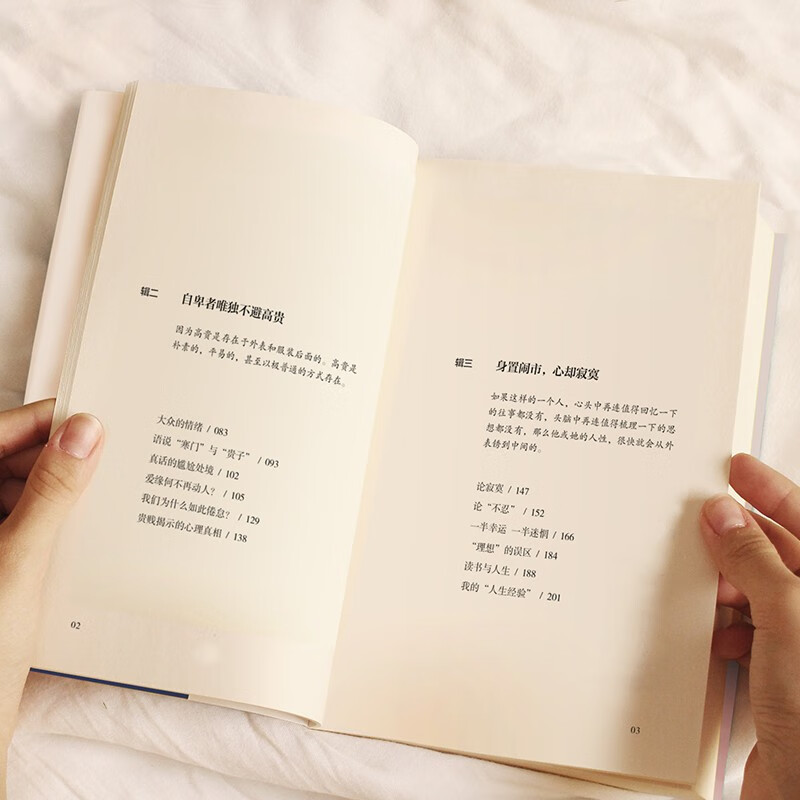 辑二 自卑者唯独不避高贵
因为高贵是存在于外表和服装后面的。高贵是
朴素的，平易的，甚至以极普通的方式存在。
大众的情绪 / 083
语说“寒门”与“贵子” / 093
真话的尴尬处境 / 102
爱缘何不再动人？ / 105
我们为什么如此倦怠？ / 129
贵贱揭示的心理真相 / 138
02
辑三 身置闹市，心却寂寞
如果这样的一个人，心头中再连值得回忆一下
的往事都没有，头脑中再连值得梳理一下的思
想都没有，那么他或她的人性，很快就会从外
表锈到中间的。
论寂寞 / 147
论“不忍” / 152
一半幸运 一半迷惘 / 166
“理想”的误区 / 184
读书与人生 / 188
我的“人生经验” / 201
03